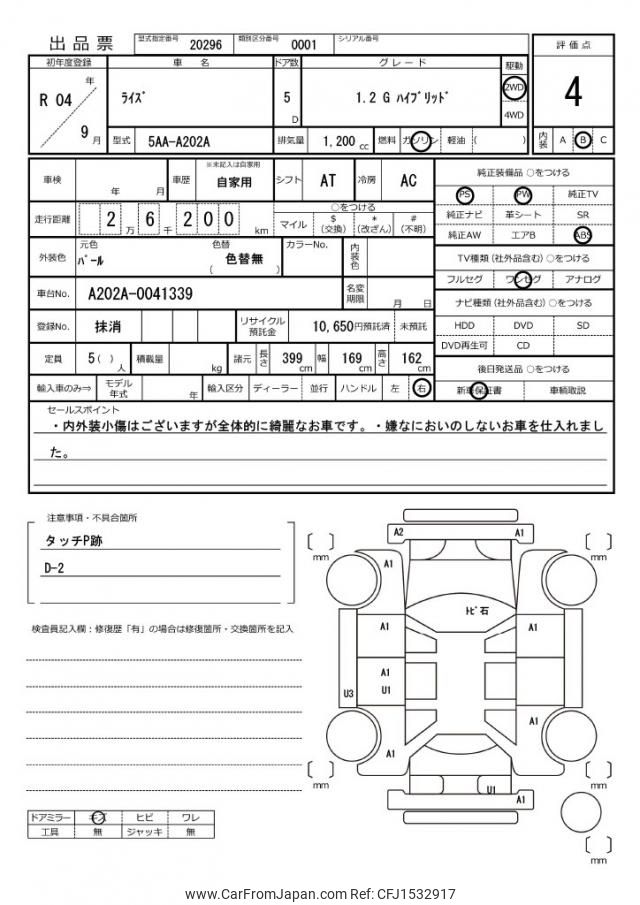 出品票 型式指定番号 20296 類別区分番号 0001 シリアル番号
評価点
4
内装 A B C
初年度登録 車名 ドア数 グレード 駆動
R 04 年 9月 ﾗｲｽﾞ 5 D 1.2 G ﾊｲﾌﾞﾘｯﾄﾞ 2WD 4WD
型式 5AA-A202A 排気量 1,200 cc 燃料 ガソリン 軽油 ( )
車検 年 月 車歴 ※未記入は自家用 自家用 シフト AT 冷房 AC
走行距離 2万 6千 200 km
○をつける
マイル $(交換) *(改ざん) #(不明)
外装色 元色 ﾊﾟｰﾙ 色替 ( 色替無 ) カラーNo. 内装色
車台No. A202A-0041339 名変期限 月 日
登録No. 抹消 リサイクル預託金 10,650円預託済 未預託
定員 5( )人 積載量 kg 諸元 長さ 399cm 幅 169cm 高さ 162cm
輸入車のみ⇒ モデル年式 年 輸入区分 ディーラー 並行 ハンドル 左 右
純正装備品 ○をつける
PS PW 純正TV
純正ナビ 革シート SR
純正AW エアB ABS
TV種類(社外品含む) ○をつける
フルセグ ワンセグ アナログ
ナビ種類(社外品含む) ○をつける
HDD DVD SD
DVD再生可 CD
後日発送品 ○をつける
新車保証書 車輌取説
セールスポイント
・内外装小傷はございますが全体的に綺麗なお車です。・嫌なにおいのしないお車を仕入れまし
た。
注意事項・不具合箇所
タッチP跡
D-2
検査員記入欄：修復歴「有」の場合は修復箇所・交換箇所を記入
ドアミラー キズ ヒビ ワレ
工具 無 ジャッキ 無
A2 A1
mm mm
A1 A1
ﾄﾋﾞ石
A1 A1
A1
U3 U1
A1
A1
mm mm
U1
A1
mm
www.CarFromJapan.com Ref: CFJ1532917